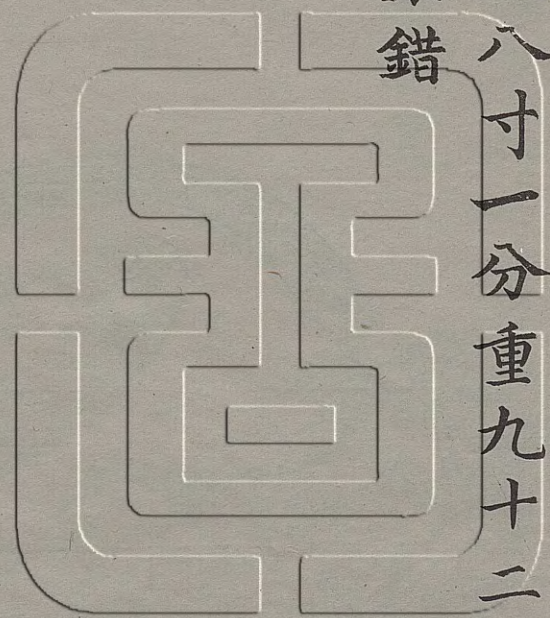 八寸一分重九十二
錯